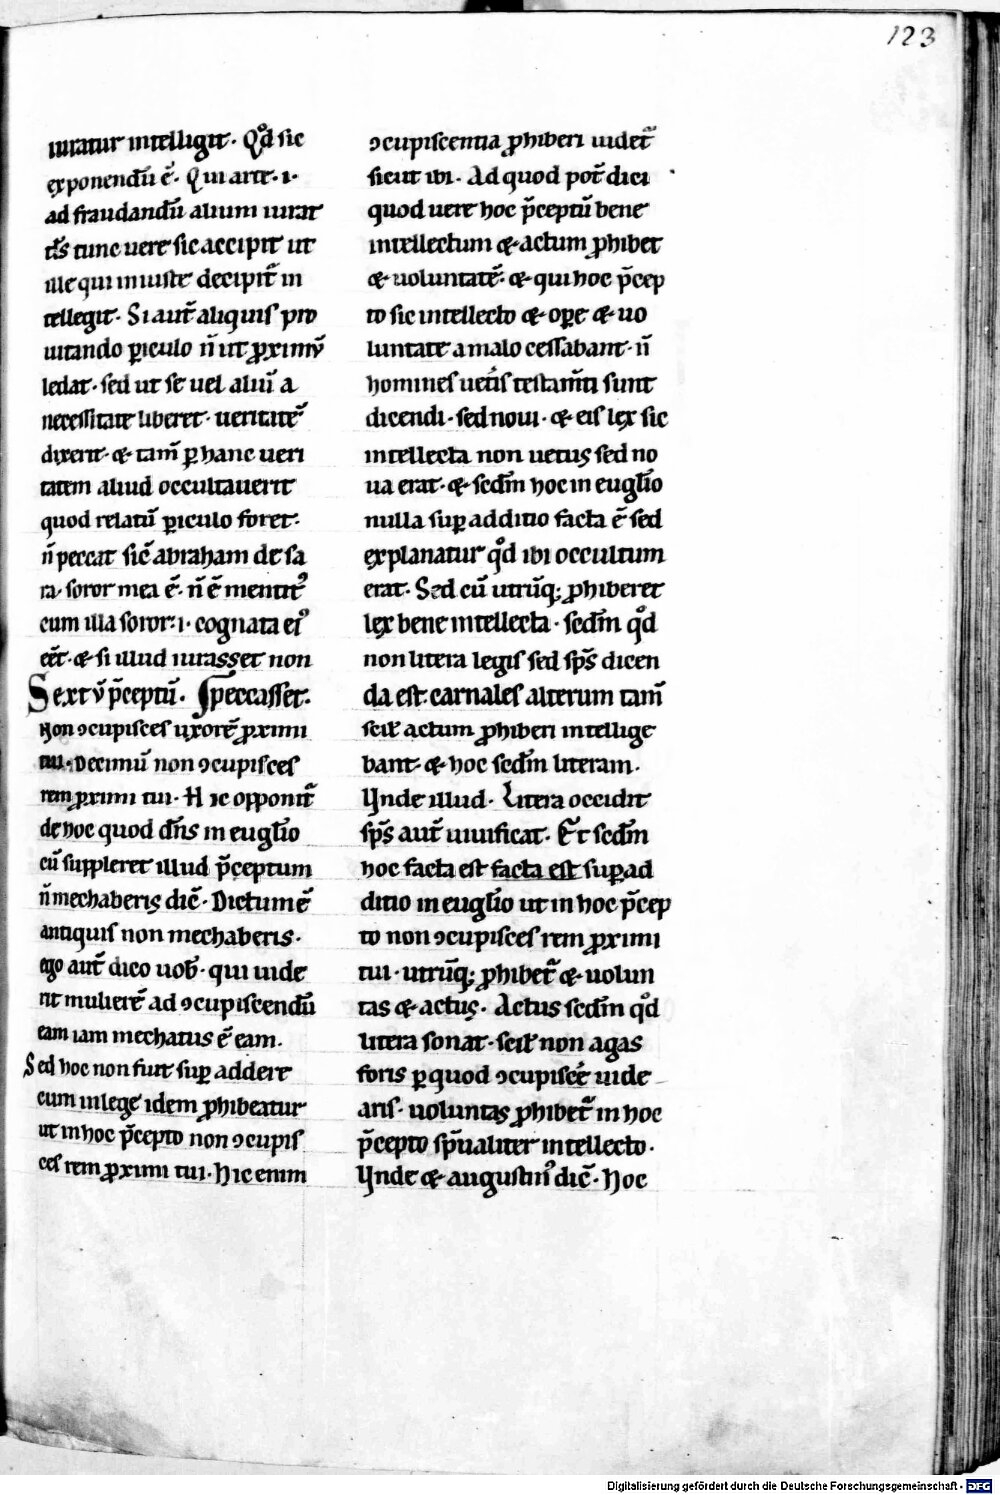 123
iuratur intelligit. Qd̊ sic
exponendū ē. Qui arte .i.
ad fraudandū alium iurat
ds̄ tunc uere sic accipit ut
ille qui iniuste decipit᷑ in
tellegit. Si aut̄ aliquis pro
uitando ꝑiculo n̄ ut ꝓximū
ledat. sed ut se uel aliū a
necessitate liberet. ueritatē
dixerit. & tam̄ ꝑ hanc ueri
tatem aliud occultauerit
quod relatū ꝑiculo foret.
n̄ peccat sic̄ abraham de sa
ra. soror mea ē. n̄ ē mentitꝰ
cum illa soror .i. cognata eiꝰ
eēt. & si illud iurasset non
Sextū p̄ceptū. peccasset.
Non ɔcupisces uxorē ꝓximi
tui. Decimū non ɔcupisces
rem ꝓximi tui. Hic opponit᷑
de hoc quod dn̄s in eugl̄io
cū suppleret illud p̄ceptum
n̄ mechaberis dic̄. Dictum ē
antiquis non mechaberis.
ego aut̄ dico uob̄. qui uide
rit mulierē ad ɔcupiscendū
eam iam mechatus ē eam.
Sed hoc non fuit suꝑ addere
cum in lege idem ꝓhibeatur
ut in hoc p̄cepto non ɔcupis
ces rem ꝓximi tui. Hic enim
ɔcupiscentia ꝓhiberi uidet᷑
sicut ibi. Ad quod pot̄ dici
quod uere hoc p̄ceptū bene
intellectum & actum ꝓhibet
& uoluntatē. & qui hoc p̄cep
to sic intellecto & oꝑe & uo
luntate a malo cessabant. n̄
homines uet̄is testam̄ti sunt
dicendi. sed noui. & eis lex sic
intellecta non uetus sed no
ua erat. & scdm̄ hoc in eugl̄io
nulla suꝑ additio facta ē sed
explanatur qd̊ ibi occultum
erat. Sed cū utrūq; ꝓhiberet
lex bene intellecta. scdm̄ qd̊
non litera legis sed sp̄s dicen
da est. carnales alterum tam̄
scil̄ actum ꝓhiberi intellige
bant. & hoc scdm̄ literam.
Unde illud. Litera occidit
sp̄s aut̄ uiuificat. Et scdm̄
hoc facta est facta est suꝑ ad
ditio in eugl̄io ut in hoc p̄cep
to non ɔcupisces rem ꝓximi
tui. utrūq; ꝓhibet᷑ & uolun
tas & actus. Actus scdm̄ qd̊
litera sonat. scil̄ non agas
foris ꝑ quod ɔcupiscē uide
aris. uoluntas ꝓhibet᷑ in hoc
p̄cepto sp̄ualiter intellecto.
Unde & augustinꝰ dic̄. Hoc
Digitalisierung gefördert durch die Deutsche Forschungsgemeinschaft - DFG